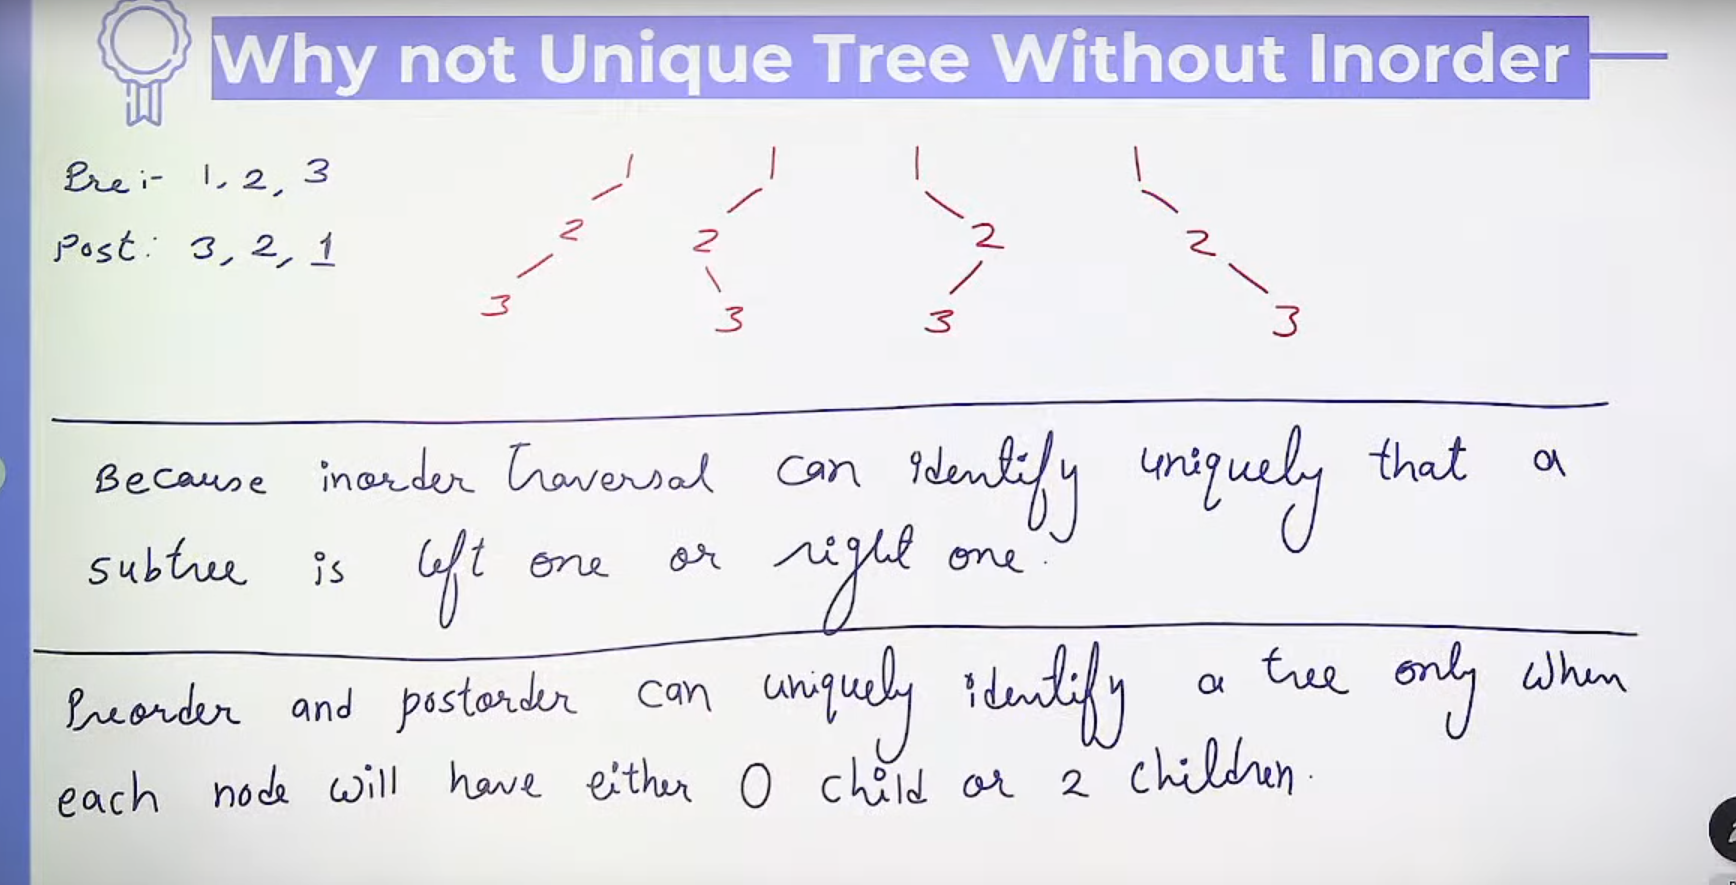 Why not Unique Tree Without Inorder
Pre :- 1, 2, 3
Post: 3, 2, 1
1 1 1 1
2 2 2 2
3 3 3 3
Because inorder traversal can identify uniquely that a
subtree is left one or right one.
Preorder and postorder can uniquely identify a tree only when
each node will have either 0 child or 2 children.